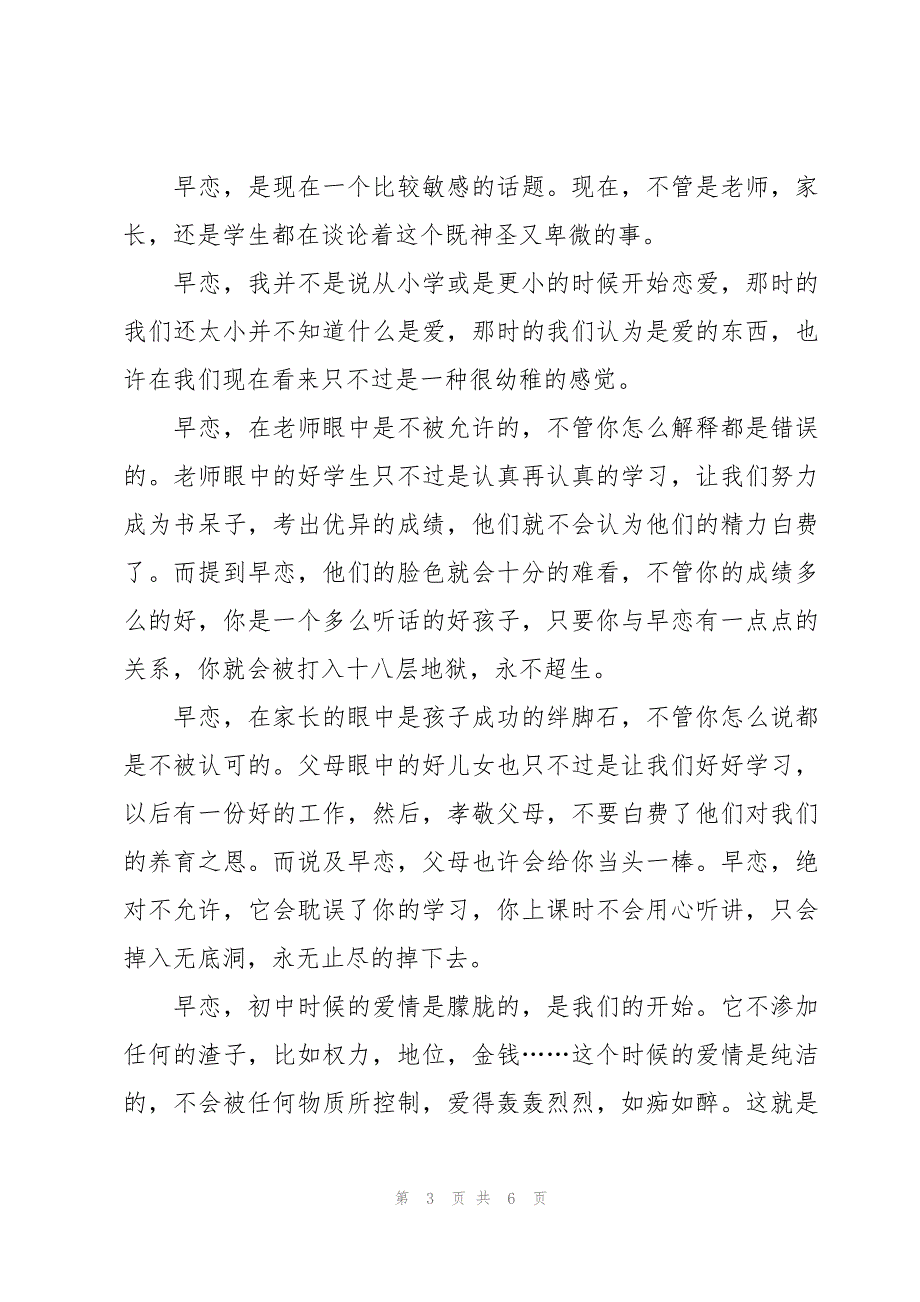 早恋，是现在一个比较敏感的话题。现在，不管是老师，家
长，还是学生都在谈论着这个既神圣又卑微的事。
早恋，我并不是说从小学或是更小的时候开始恋爱，那时的
我们还太小并不知道什么是爱，那时的我们认为是爱的东西，也
许在我们现在看来只不过是一种很幼稚的感觉。
早恋，在老师眼中是不被允许的，不管你怎么解释都是错误
的。老师眼中的好学生只不过是认真再认真的学习，让我们努力
成为书呆子，考出优异的成绩，他们就不会认为他们的精力白费
了。而提到早恋，他们的脸色就会十分的难看，不管你的成绩多
么的好，你是一个多么听话的好孩子，只要你与早恋有一点点的
关系，你就会被打入十八层地狱，永不超生。
早恋，在家长的眼中是孩子成功的绊脚石，不管你怎么说都
是不被认可的。父母眼中的好儿女也只不过是让我们好好学习，
以后有一份好的工作，然后，孝敬父母，不要白费了他们对我们
的养育之恩。而说及早恋，父母也许会给你当头一棒。早恋，绝
对不允许，它会耽误了你的学习，你上课时不会用心听讲，只会
掉入无底洞，永无止尽的掉下去。
早恋，初中时候的爱情是朦胧的，是我们的开始。它不渗加
任何的渣子，比如权力，地位，金钱……这个时候的爱情是纯洁
的，不会被任何物质所控制，爱得轰轰烈烈，如痴如醉。这就是
第 3 页 共 6 页